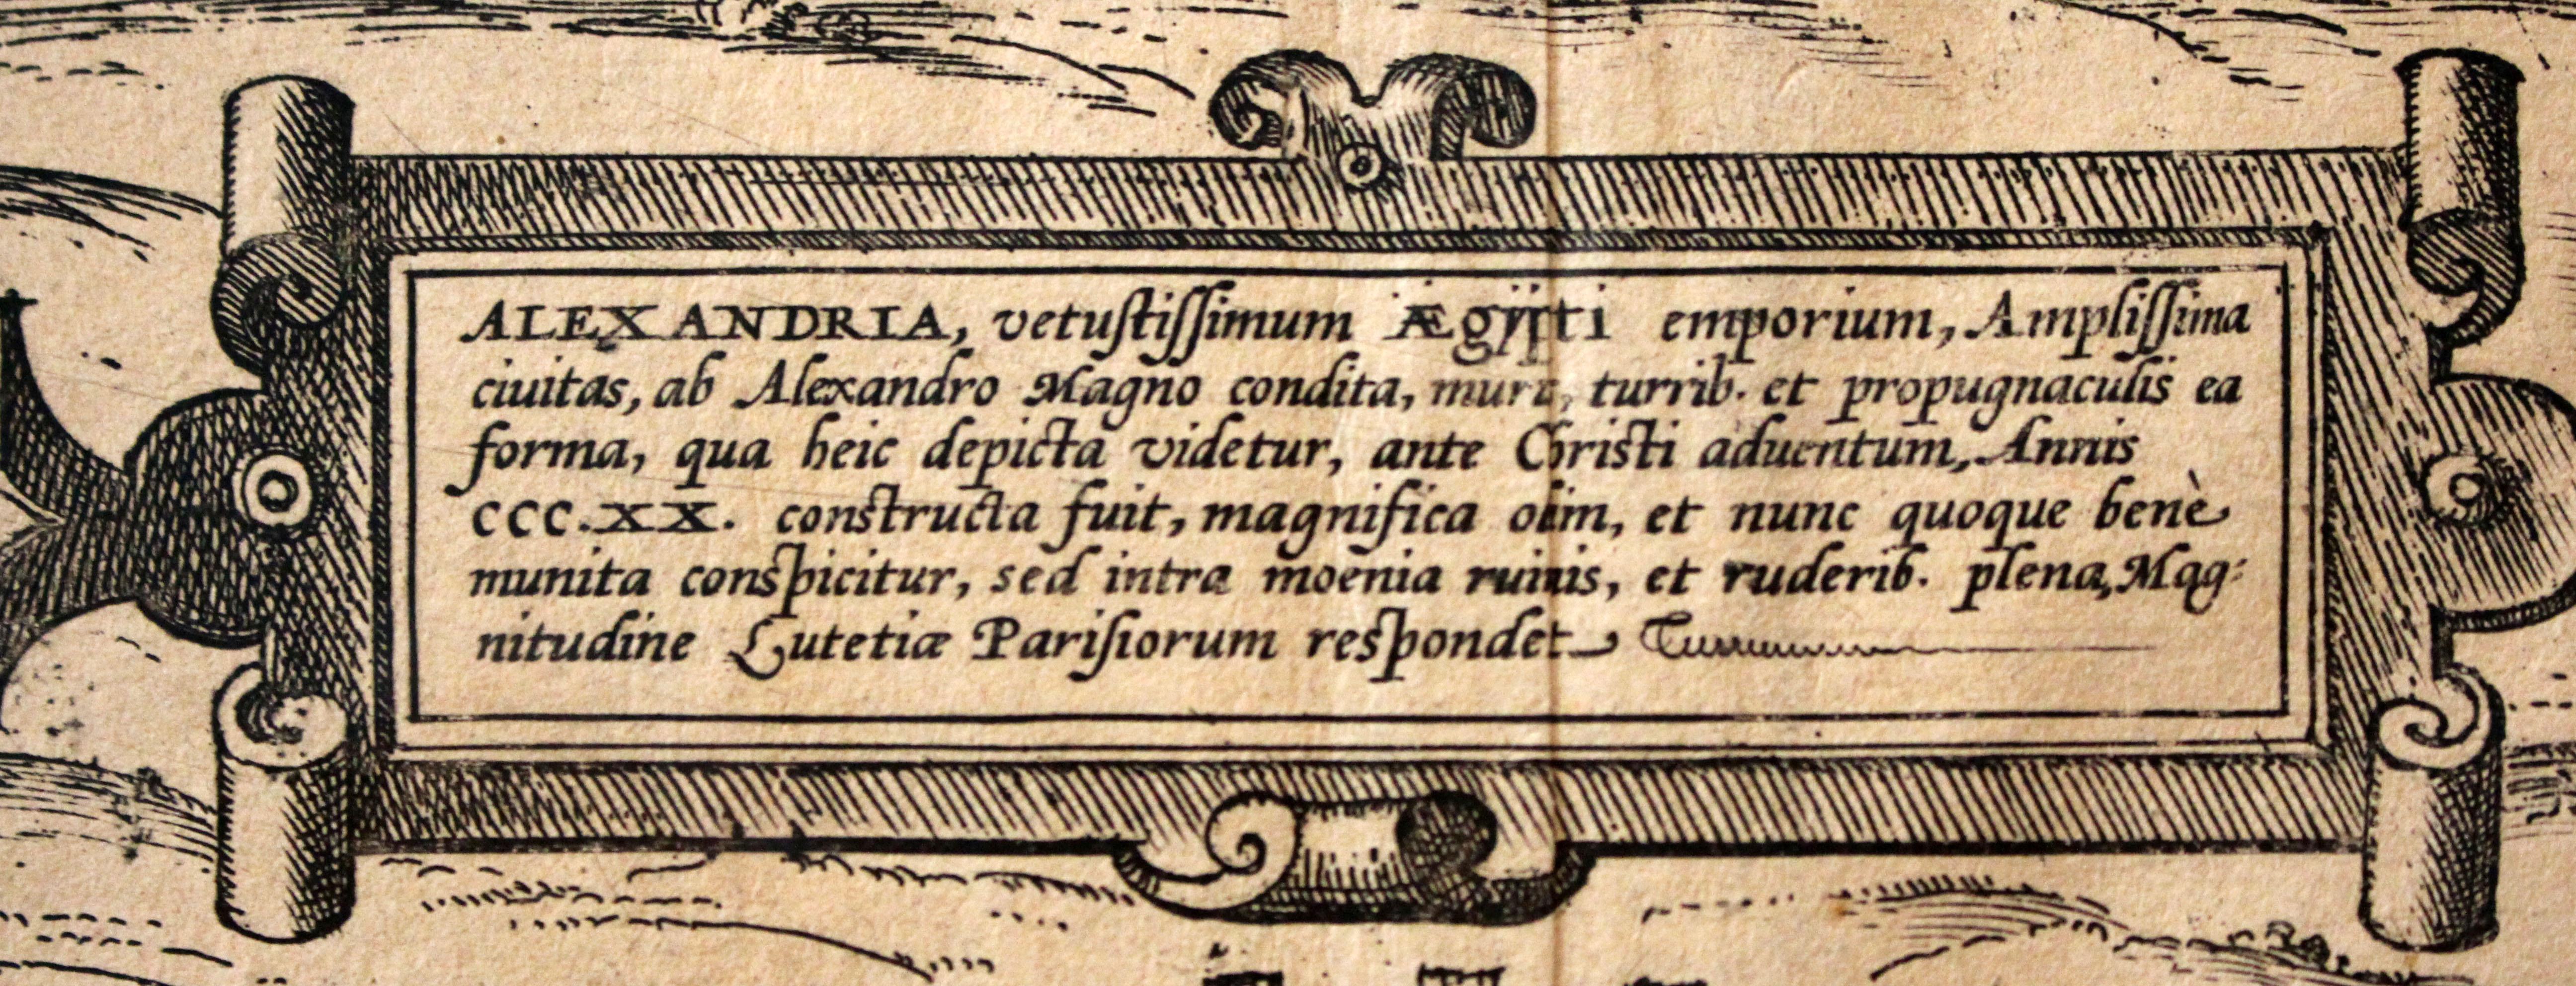 ALEXANDRIA, vetustissimum Ægijti emporium, Amplissima
ciuitas, ab Alexandro Magno condita, turrib. et propugnaculis ea
forma, qua heic depicta videtur, ante Christi aduentum, Annis
CCC.XX. constructa fuit, magnifica olim, et nunc quoque benè
munita conspicitur, sed intra moenia ruinis, et ruderib. plena, Mag:
nitudine Lutetiæ Parisiorum respondet